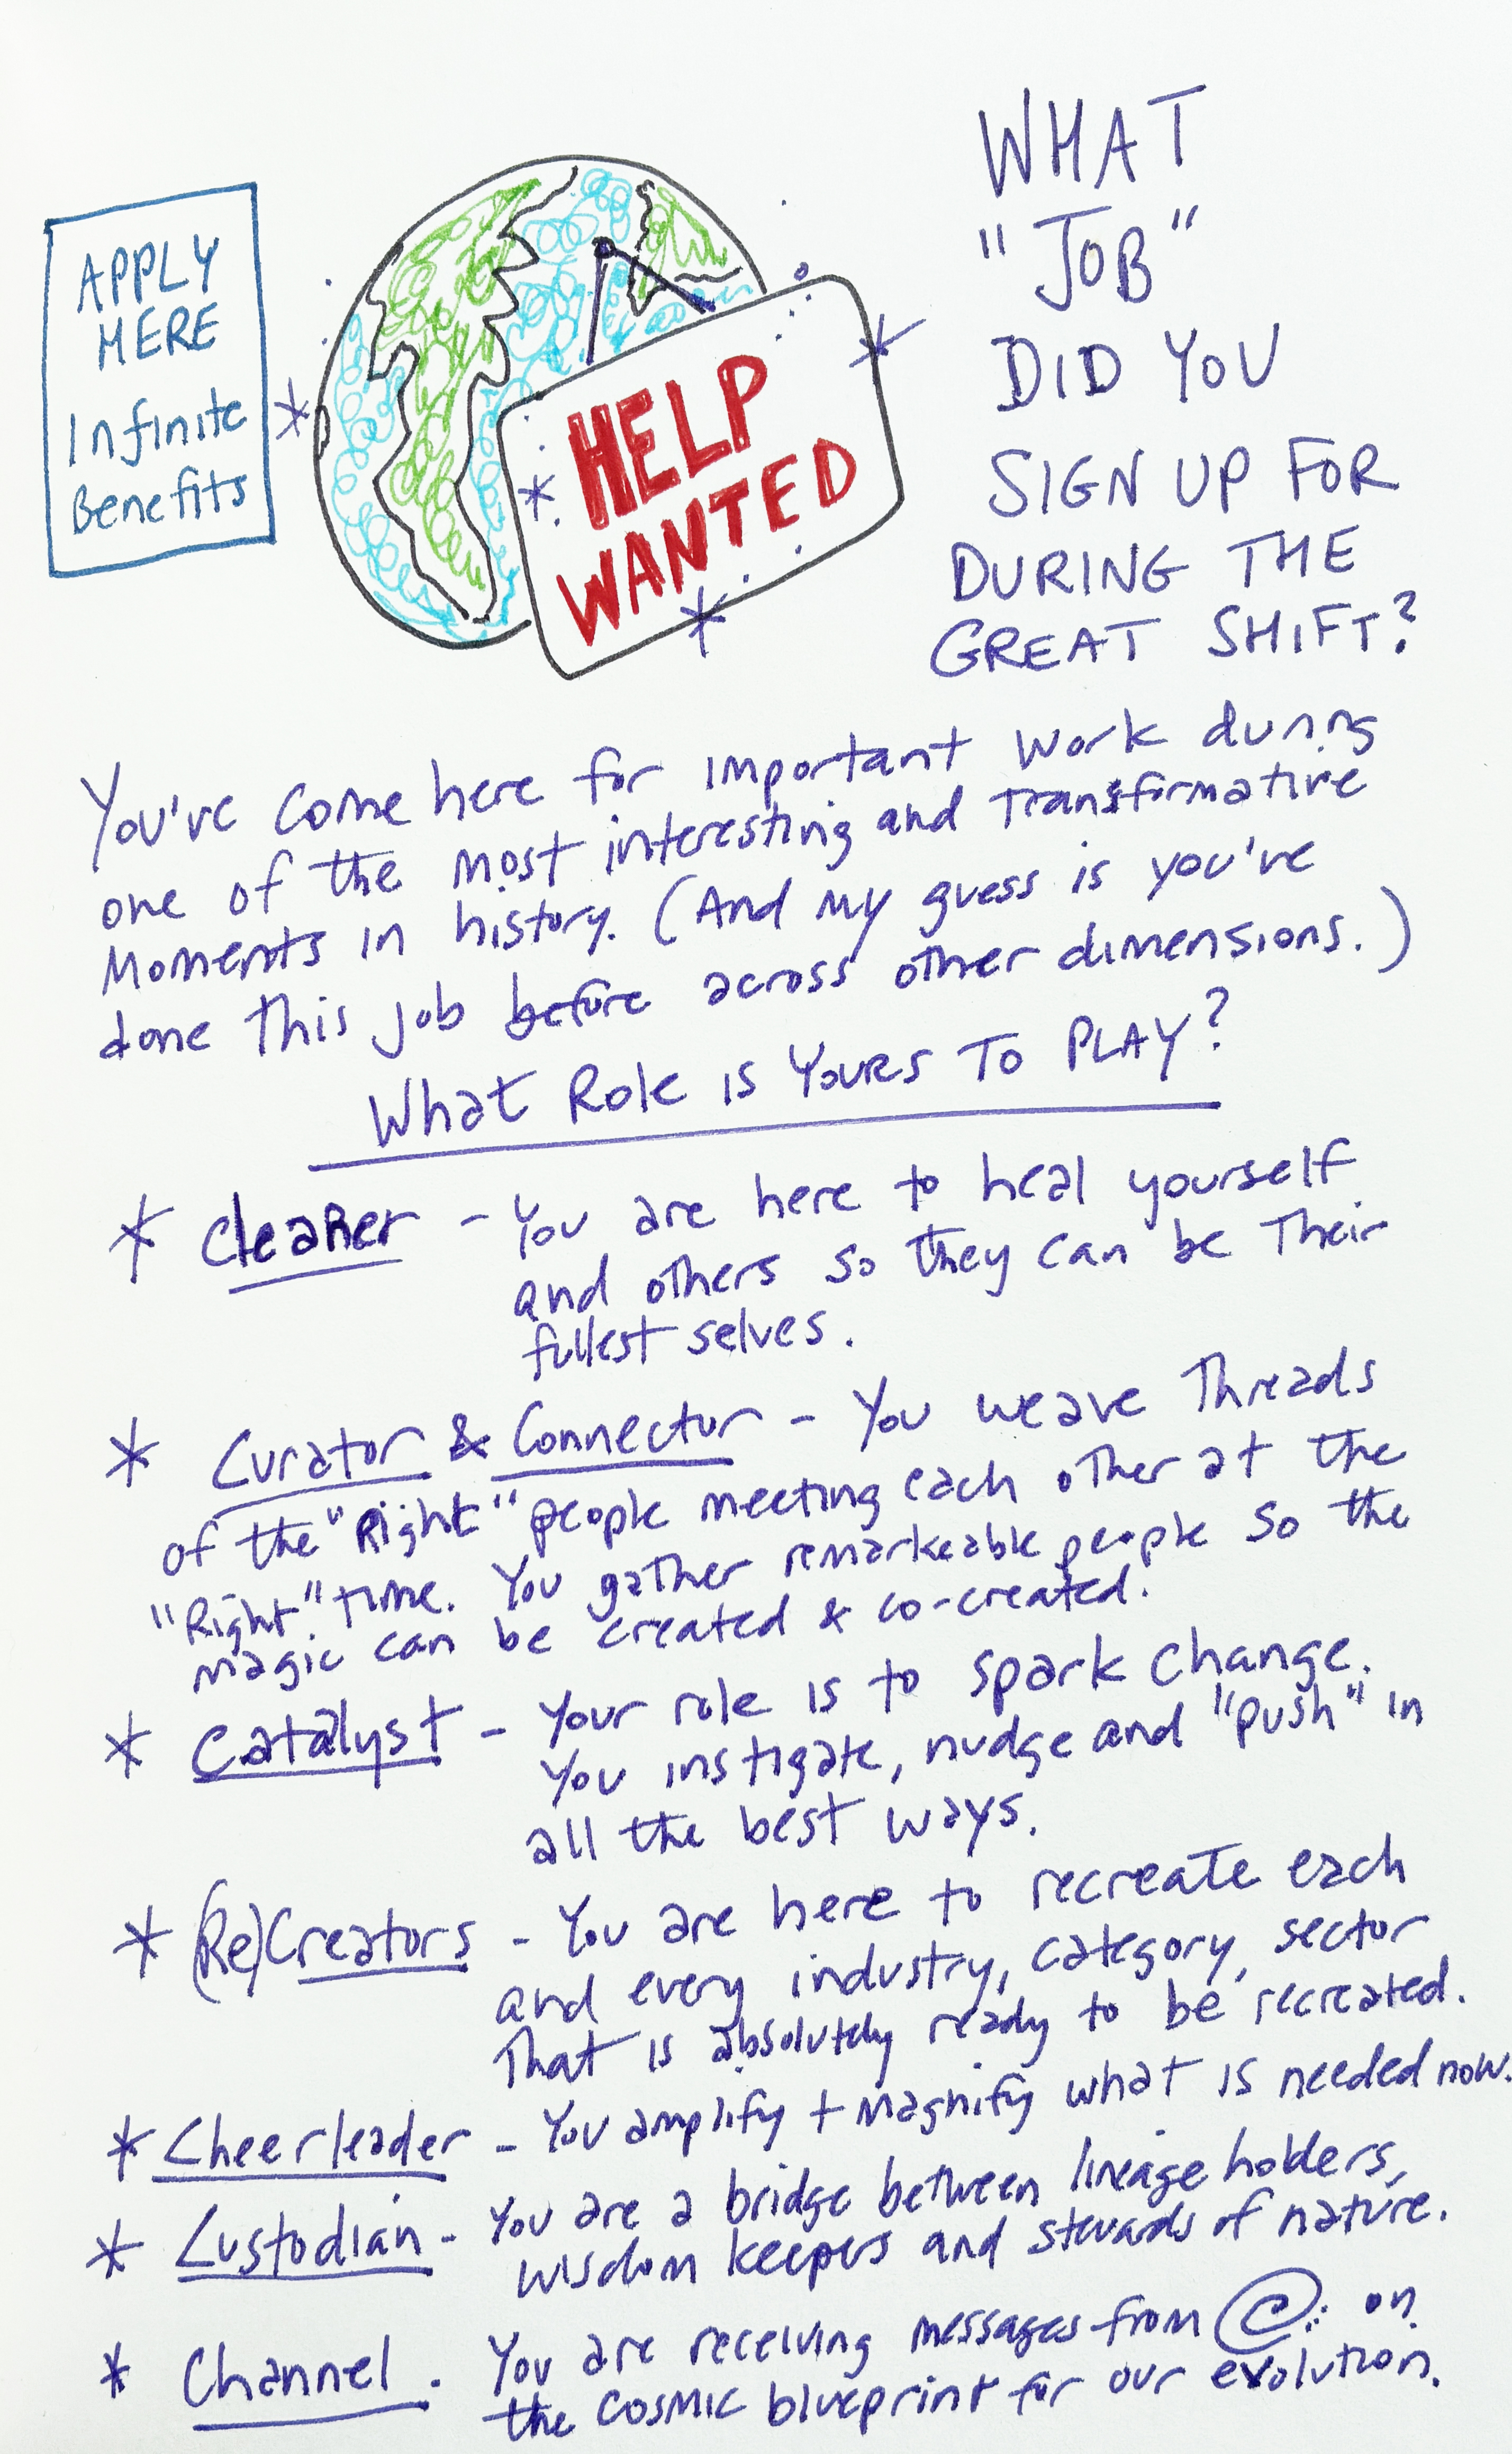 APPLY
HERE
Infinite
Benefits
HELP
WANTED
WHAT
"JOB"
DID YOU
SIGN UP FOR
DURING THE
GREAT SHIFT?
You've come here for important work during
one of the most interesting and transformative
moments in history. (And my guess is you've
done this job before across other dimensions.)
What Role is Yours To PLAY?
* Cleaner - You are here to heal yourself
and others so they can be their
fullest selves.
* Curator & Connector - You weave Threads
of the "Right" people meeting each other at the
"Right" time. You gather remarkeable people so the
magic can be created & co-created.
* Catalyst - Your role is to spark change.
You instigate, nudge and "push" in
all the best ways.
* (Re)Creators - You are here to recreate each
and every industry, category, sector
That is absolutely ready to be recreated.
* Cheerleader - You amplify + magnify what is needed now.
* Custodian - You are a bridge between lineage holders,
wisdom keepers and stewards of nature.
* Channel. You are receiving messages from on
the cosmic blueprint for our evolution.